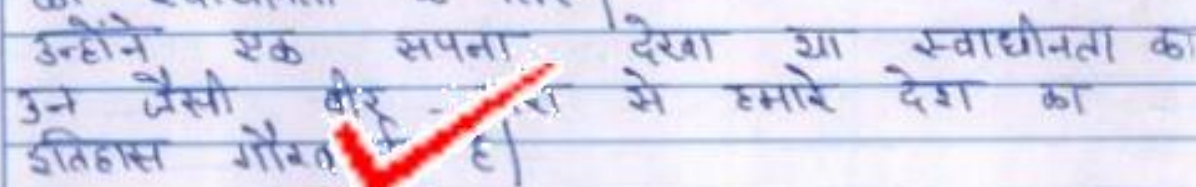 उन्होंने एक सपना देखा था स्वाधीनता का
उन जैसी वीर से हमारे देश का
इतिहास है|